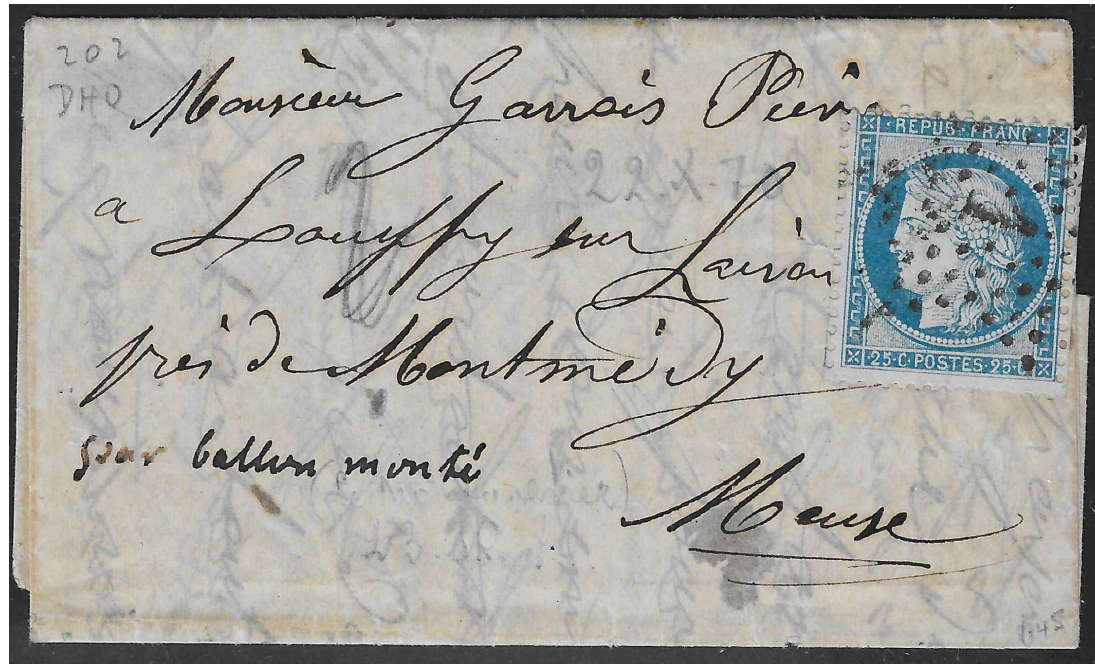 202
DHO
Monsieur Garrois Pierre
22.X.70
à Louppy sur Loison
près de Montmédy
par ballon monté
Meuse
REPUB. FRANC.
1
25·C·POSTES·25·C
145